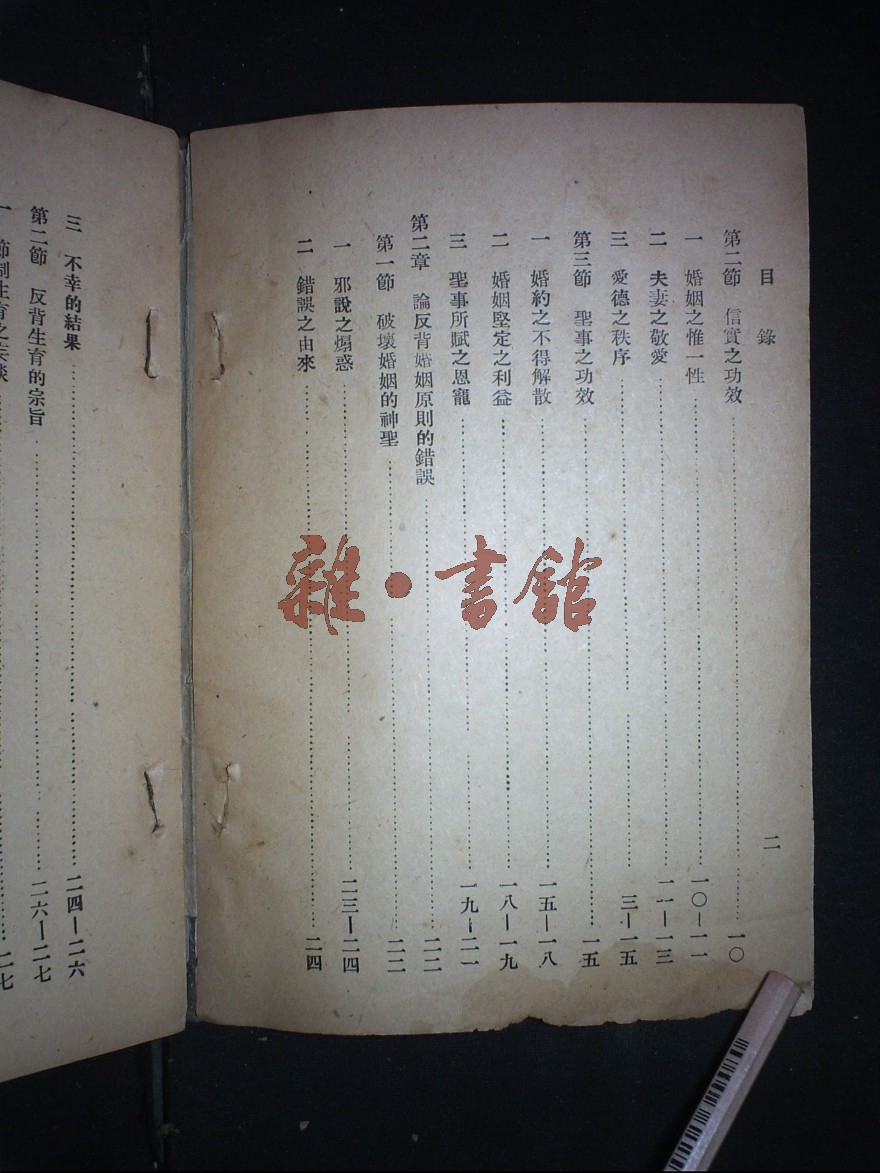 目錄
二
第二節 信實之功效……一〇
一 婚姻之惟一性……一〇—一一
二 夫妻之敬愛……一一—一三
三 愛德之秩序……三—一五
第三節 聖事之功效……一五
一 婚約之不得解散……一五—一八
二 婚姻堅定之利益……一八—一九
三 聖事所賦之恩寵……一九—二一
第二章 論反背婚姻原則的錯誤……二二
第一節 破壞婚姻的神聖……二二
一 邪說之煽惑……二三—二四
二 錯誤之由來……二四
三 不幸的結果……二四—二六
第二節 反背生育的宗旨……二六—二七
一 節制生育之……二七
雜·書館